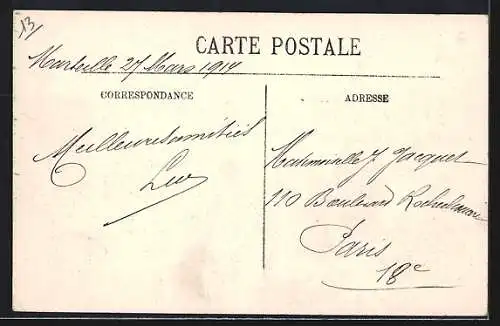 13
CARTE POSTALE
Marseille 27 Mars 1914
CORRESPONDANCE
Meilleures amitiés
ADRESSE
Mademoiselle J. Jacquet
110 Boulevard Rochechouart
Paris
18e